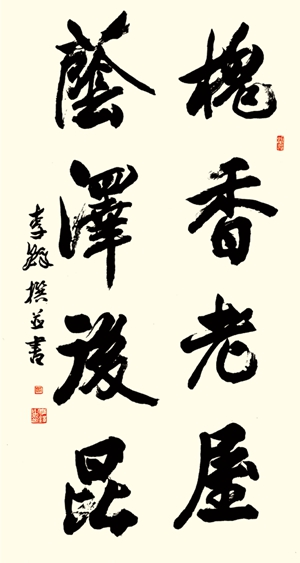 槐香老屋
蔭澤後昆
撰並書